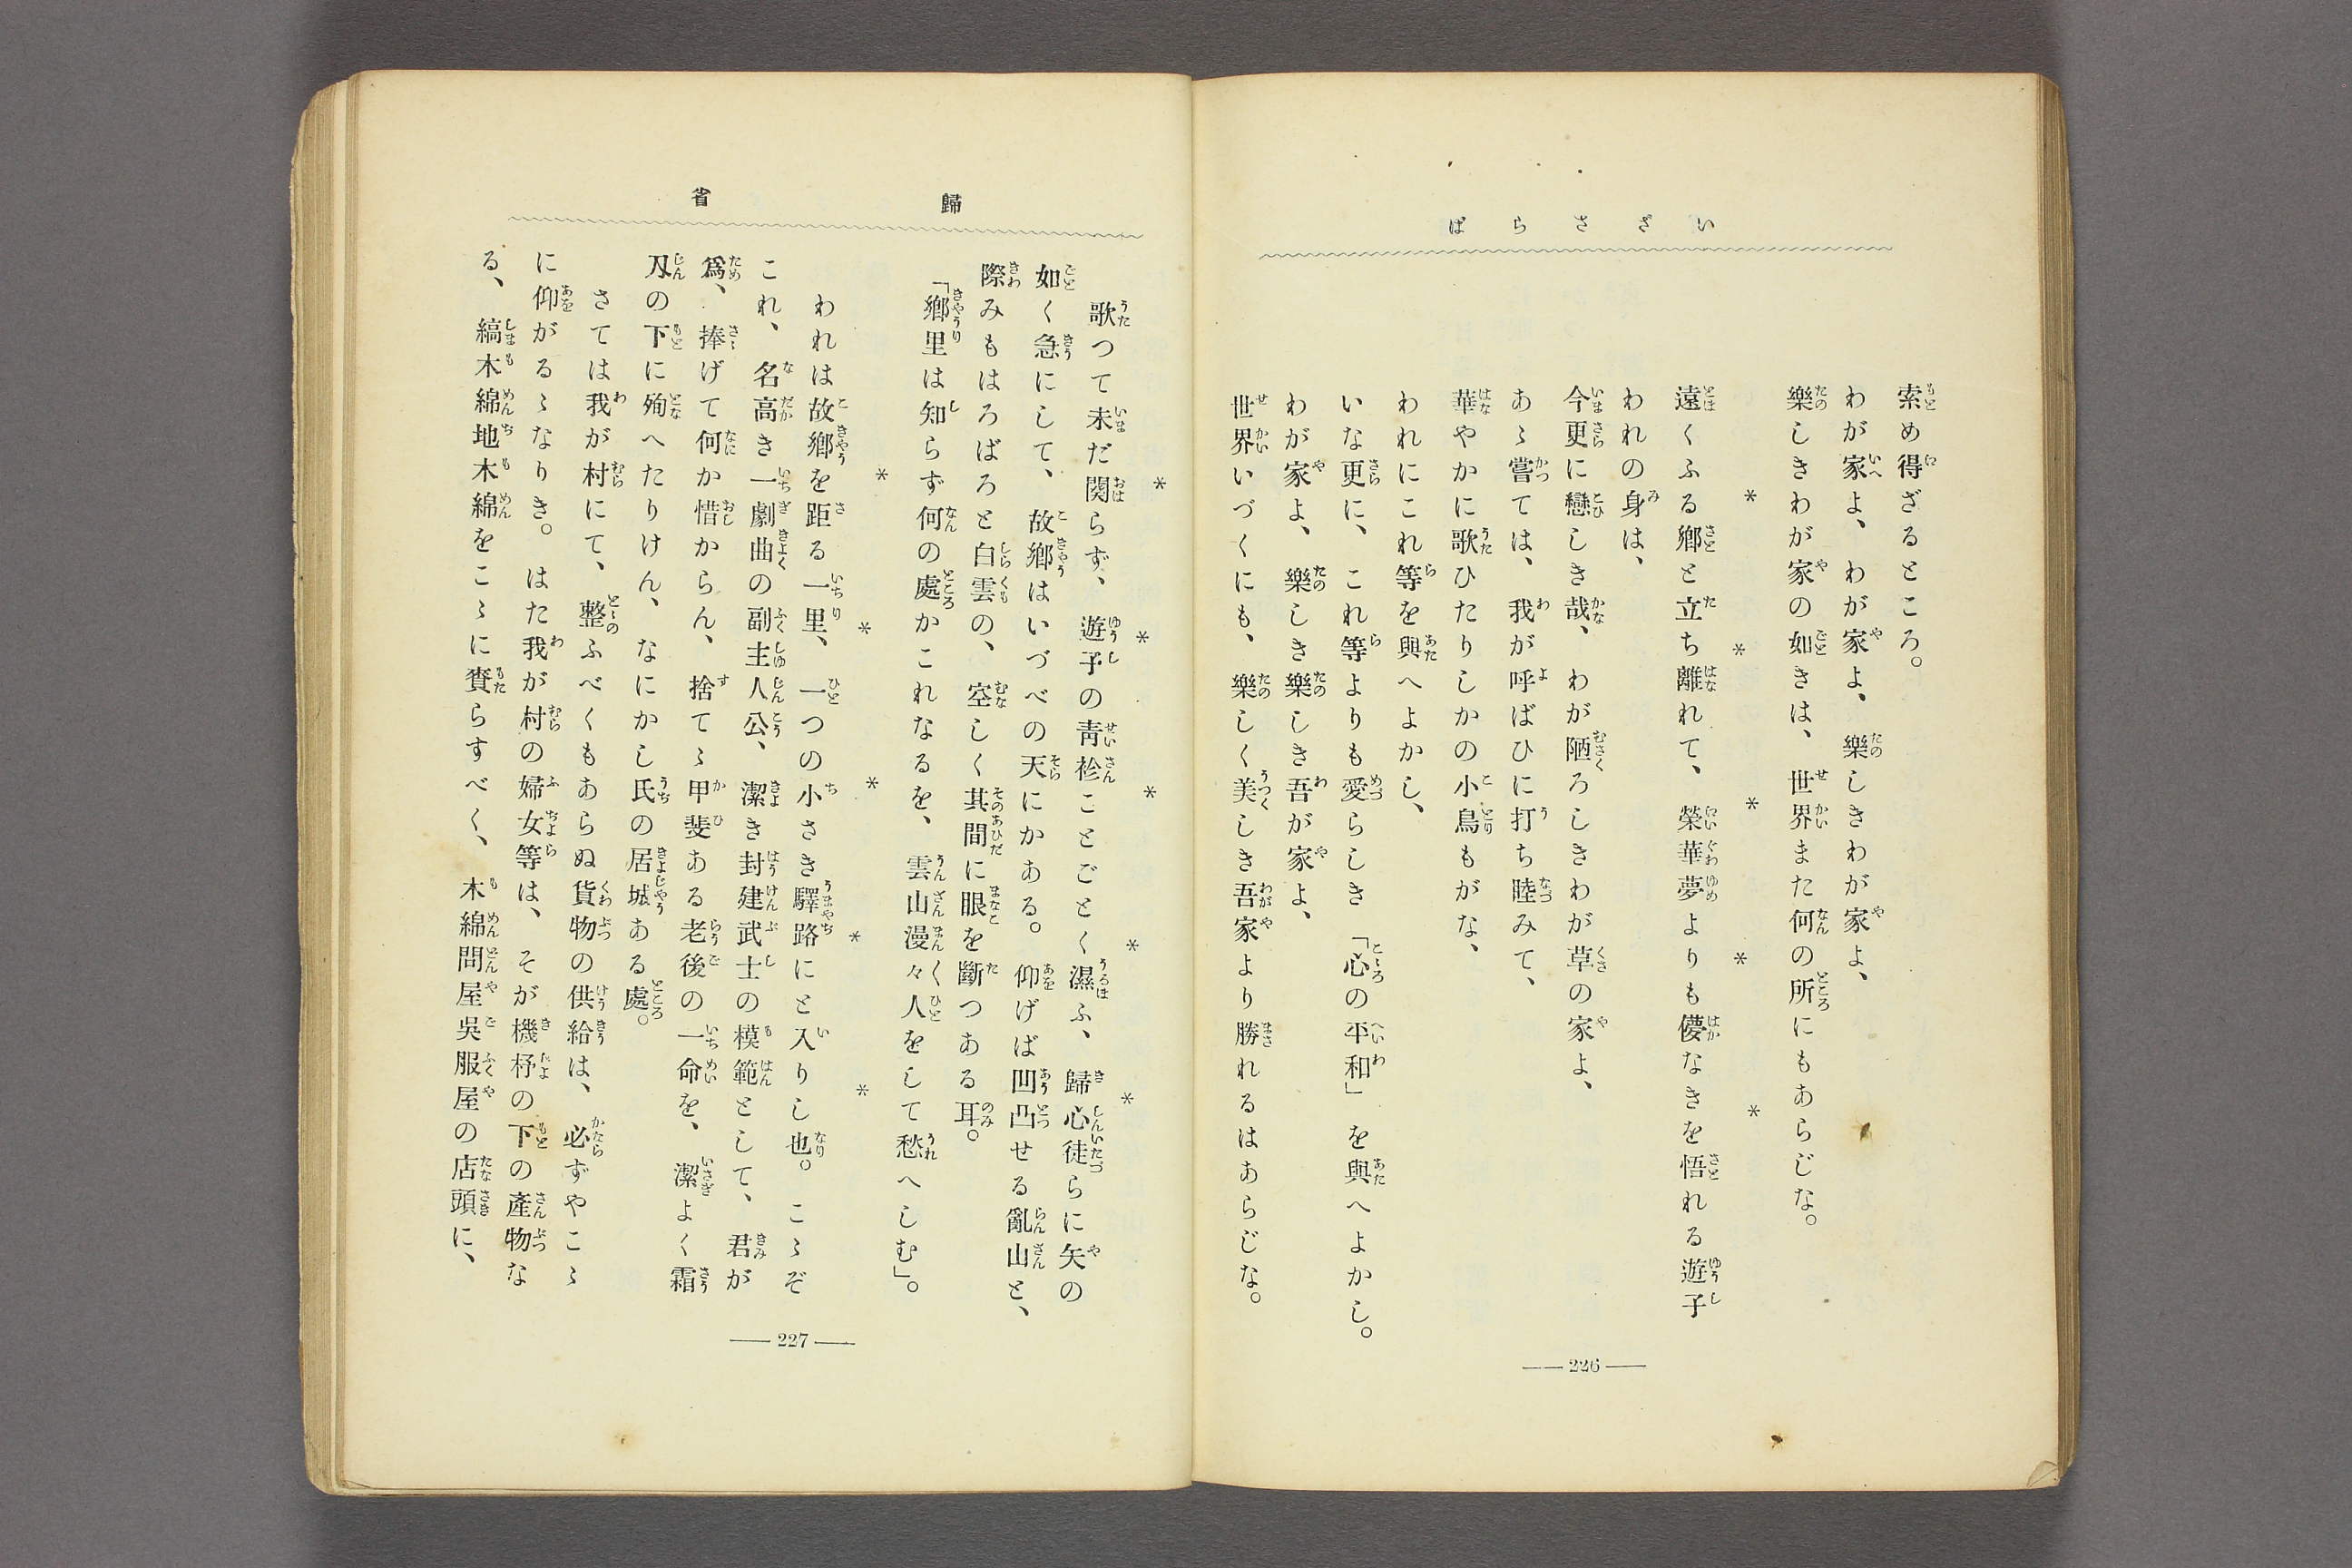 いざさらば
索め得ざるところ。
わが家よ、わが家よ、樂しきわが家よ、
樂しきわが家の如きは、世界また何の所にもあらじな。
* * * * *
遠くふる鄕と立ち離れて、榮華夢よりも儚なきを悟れる遊子
われの身は、
今更に戀しき哉、わが陋ろしきわが草の家よ、
あゝ嘗ては、我が呼ばひに打ち睦みて、
華やかに歌ひたりしかの小鳥もがな、
われにこれ等を與へよかし、
いな更に、これ等よりも愛らしき「心の平和」を與へよかし。
わが家よ、樂しき樂しき吾が家よ、
世界いづくにも、樂しく美しき吾家より勝れるはあらじな。
— 226 —
歸省
* * * * *
歌つて未だ関らず、遊子の靑衫ことごとく濕ふ、歸心徒らに矢の
如く急にして、故鄕はいづべの天にかある。仰げば凹凸せる亂山と、
際みもはろばろと白雲の、空しく其間に眼を斷つある耳。
「鄕里は知らず何の處かこれなるを、雲山漫々人をして愁へしむ」。
* * * * *
われは故鄕を距る一里、一つの小さき驛路にと入りし也。こゝぞ
これ、名高き一劇曲の副主人公、潔き封建武士の模範として、君が
爲、捧げて何か惜からん、捨てゝ甲斐ある老後の一命を、潔よく霜
刄の下に殉へたりけん、なにかし氏の居城ある處。
さては我が村にて、整ふべくもあらぬ貨物の供給は、必ずやこゝ
に仰がるゝなりき。はた我が村の婦女等は、そが機杼の下の產物な
る、縞木綿地木綿をこゝに賚らすべく、木綿問屋吳服屋の店頭に、
— 227 —